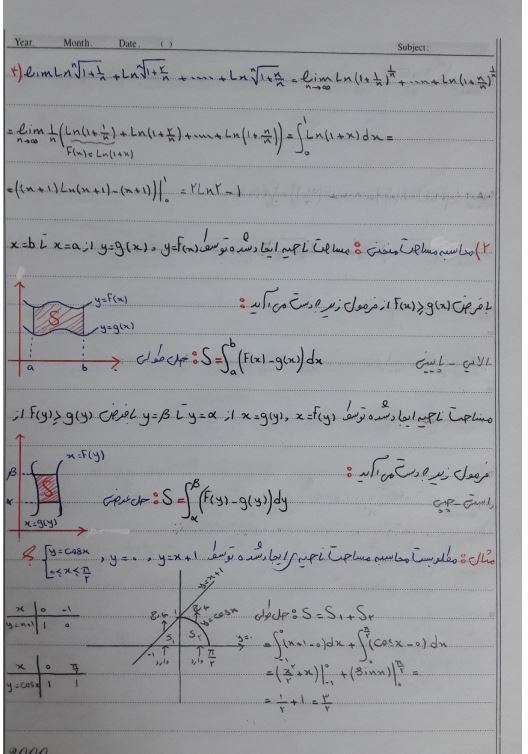 Year. Month. Date. ( ) Subject:
۲) lim Ln ⁿ√(1+1/n) + Ln ⁿ√(1+۲/n) + .... + Ln ⁿ√(1+n/n) = lim n→∞ Ln(1+1/n)^(1/n) + .... + Ln(1+n/n)^(1/n)
= lim n→∞ 1/n (Ln(1+1/n) + Ln(1+۲/n) + .... + Ln(1+n/n)) = ∫₀¹ Ln(1+x) dx =
F(x) = Ln(1+x)
= ((x+1)Ln(x+1) - (x+1))|₀¹ = ۲Ln۲ - 1
۲) محاسبه مساحت منحنی : مساحت ناحیه ایجاد شده توسط y=F(x) و y=g(x) از x=a تا x=b
با فرض F(x) ≥ g(x) از فرمول زیر بدست می‌آید :
y=F(x)
S
y=g(x)
a b
بالایی - پایینی S = ∫ₐᵇ (F(x) - g(x)) dx : حل طولی
مساحت ناحیه ایجاد شده توسط x=F(y) , x=g(y) از y=α تا y=β با فرض F(y) ≥ g(y) از
فرمول زیر بدست می‌آید :
x=F(y)
β
S
α
x=g(y)
راست - چپ S = ∫_α^β (F(y) - g(y)) dy : حل عرضی
مثال : مطلوبست محاسبه مساحت ناحیه‌ی ایجاد شده توسط y=x+1 , y=۰ , { y=cosx ۰≤x≤π/۲ ؟
x | 0 -1
y=x+1 | 1 0
x | 0 π/۲
y=cosx | 1 1
y=x+1
خارج 1 خارج
y=cosx
S₁ S۲ y=0
-1 وارد وارد π/۲
حل طولی : S = S₁ + S۲
= ∫₋₁⁰ (x+1-0)dx + ∫₀^(π/۲) (cosx-0) dx
= (x²/۲ + x)|₋₁⁰ + (sinx)|₀^(π/۲) =
= 1/۲ + 1 = ۳/۲